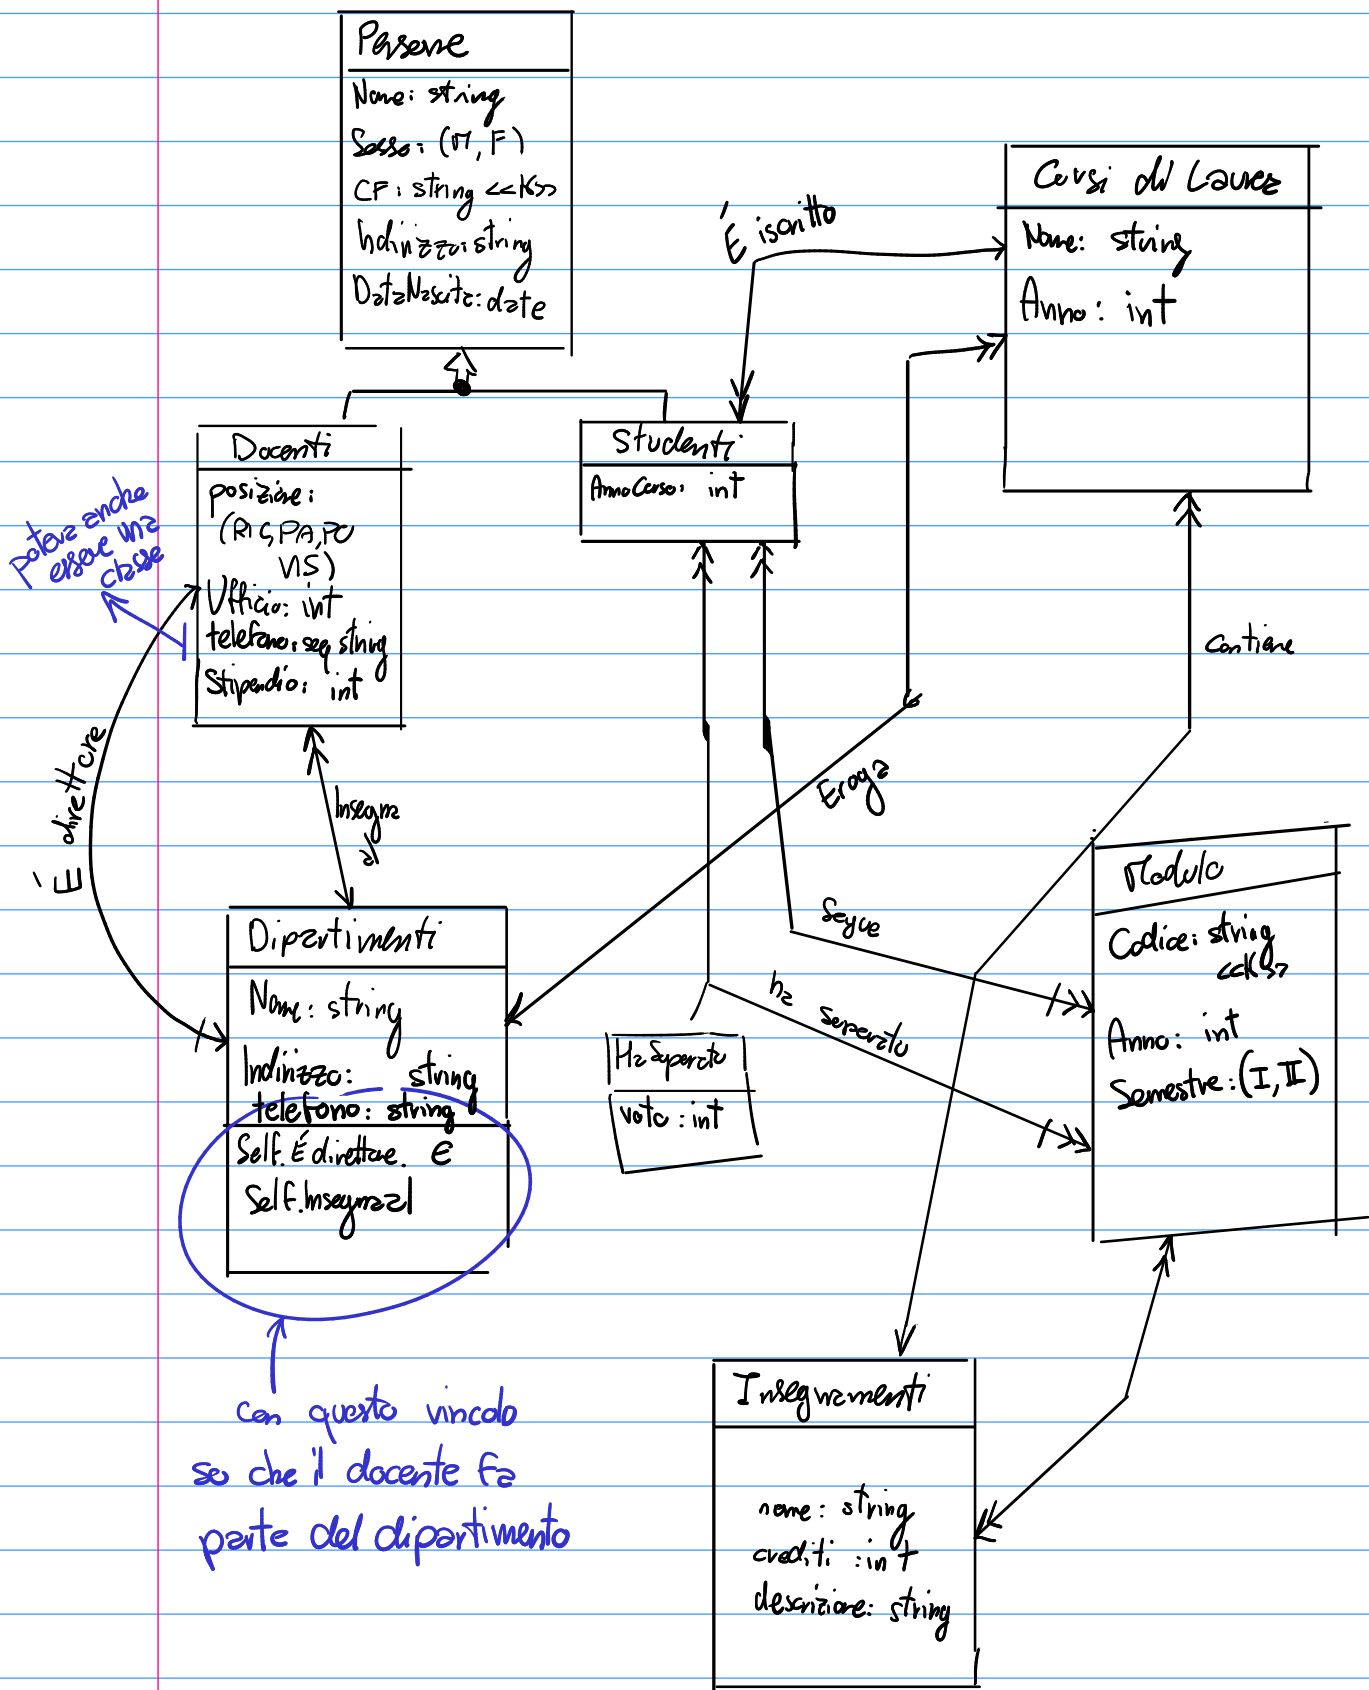 Persone
Nome: string
Sesso: (M, F)
CF: string <<K>>
Indirizzo: string
DataNascita: date
Corsi di Laurea
Nome: string
Anno: int
È iscritto
Docenti
posizione:
(RIC, PA, PO
VIS)
Ufficio: int
telefono: seq string
Stipendio: int
poteva anche
essere una
classe
Studenti
AnnoCorso: int
contiene
È direttore
Insegna
a/
Eroga
Dipartimenti
Nome: string
Indirizzo: string
telefono: string
Self.È direttore. ∈
Self.Insegnaal
Segue
ha superato
HaSuperato
voto: int
Modulo
Codice: string
<<K>>
Anno: int
Semestre: (I, II)
con questo vincolo
so che il docente fa
parte del dipartimento
Insegnamenti
nome: string
crediti: int
descrizione: string